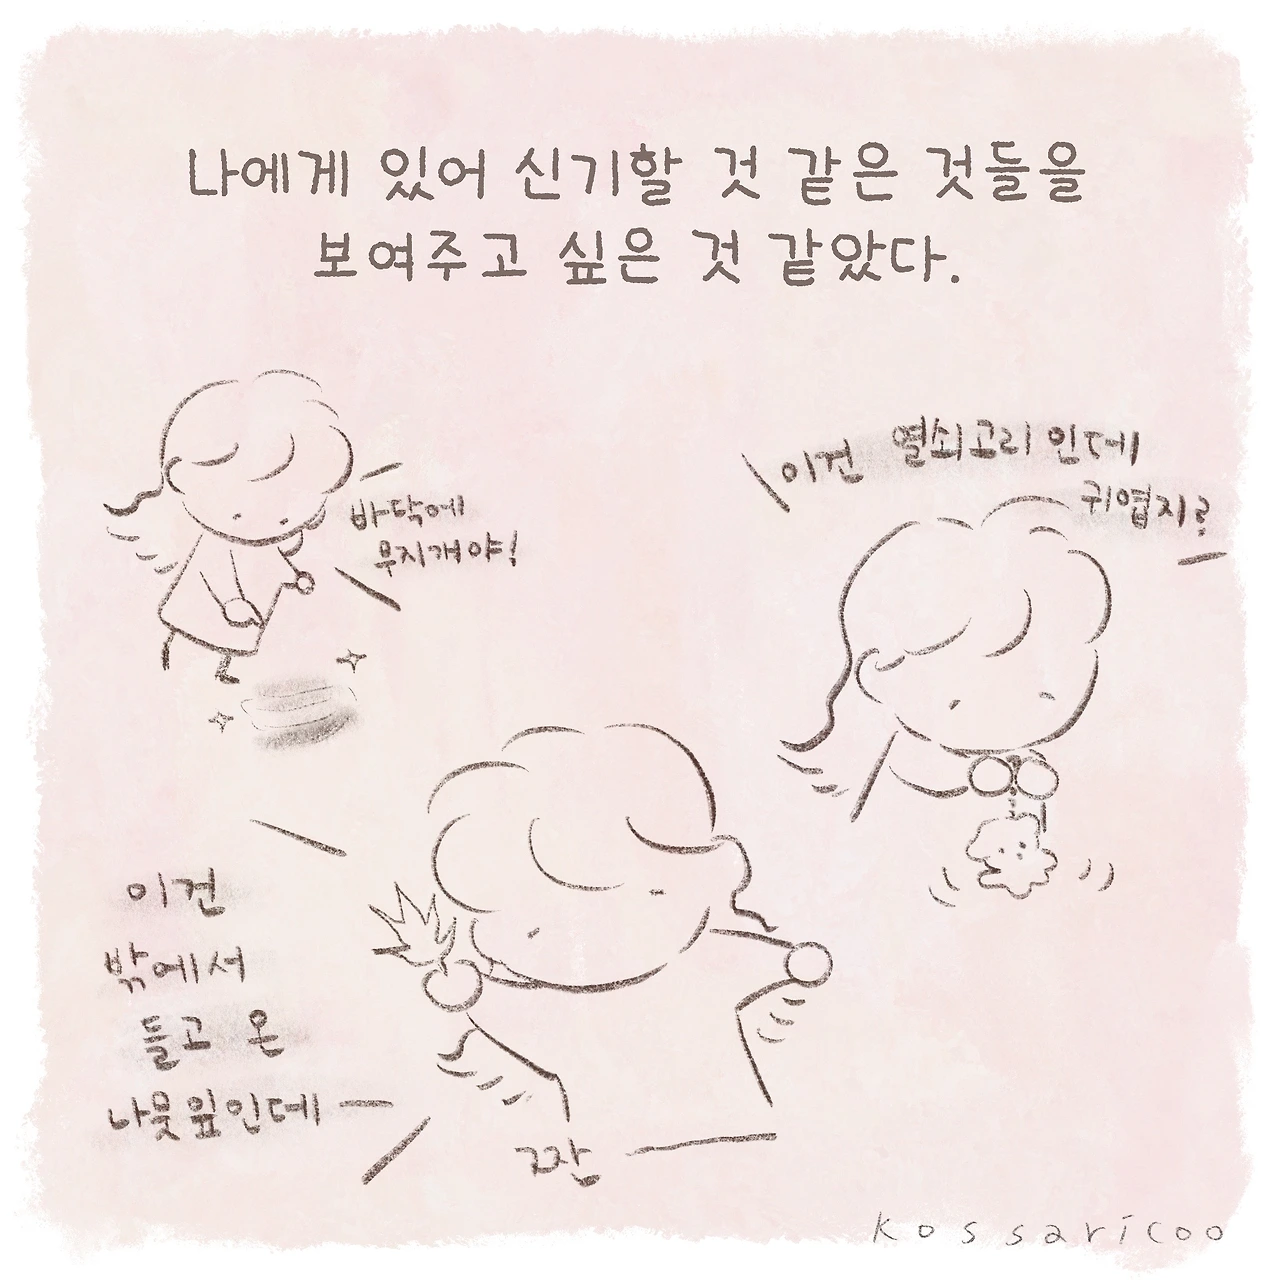 나에게 있어 신기할 것 같은 것들을
보여주고 싶은 것 같았다.
바닥에
무지개야!
이건 열쇠고리인데
귀엽지?
이건
밖에서
들고 온
나뭇잎인데
짠
kossaricoo